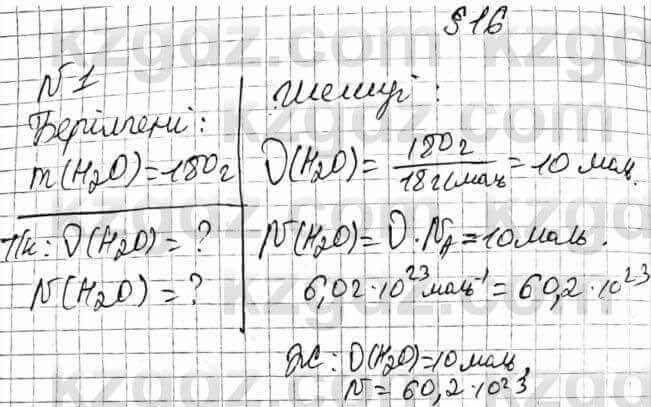 §16
N1
Берілгені:
m(H₂O)=180г
Т/к: υ(H₂O)=?
N(H₂O)=?
Шешуі:
υ(H₂O)= 180г / 18г/моль = 10 моль.
N(H₂O)=υ·N_A=10моль.
6,02·10²³моль⁻¹=60,2·10²³
Ж: υ(H₂O)=10моль,
N=60,2·10²³
kzgoz.com